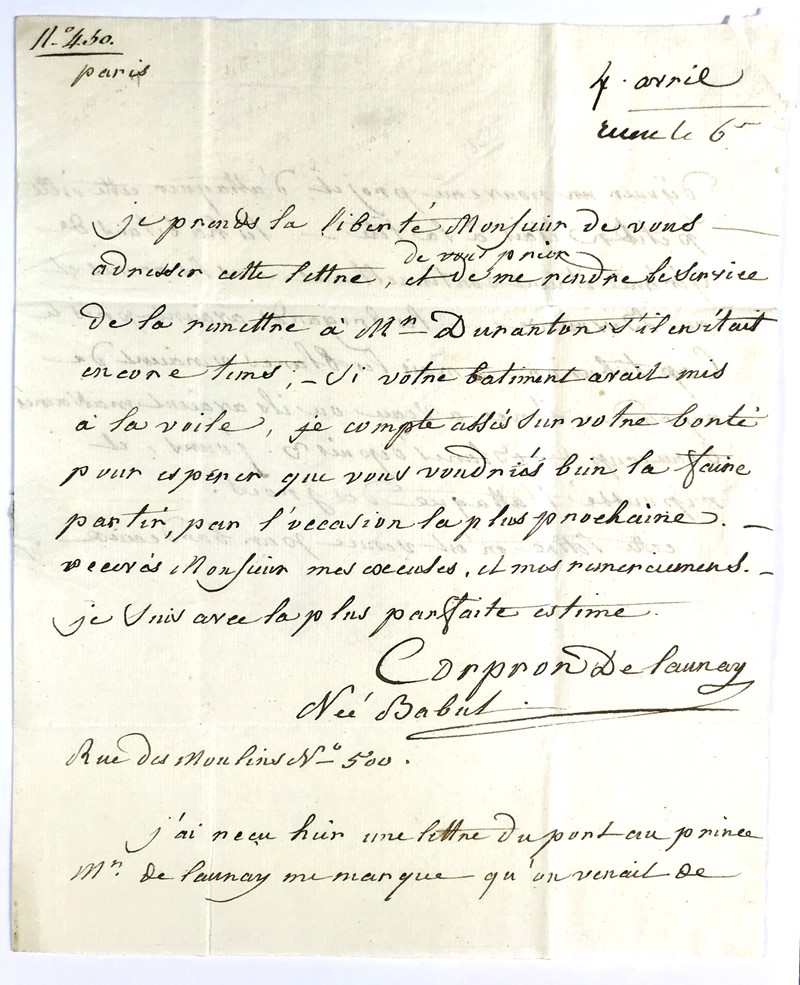 N.º 450.
paris
4. avril
recue le 6
je prends la liberté Monsieur de vous
de vous prier
adresser cette lettre, et de me rendre le service
de la remettre à Mr. Duranton s'il en était
encore tems; - si votre batiment avait mis
à la voile, je compte assés sur votre bonté
pour esperer que vous voudriés bien la faire
partir, par l'occasion la plus prochaine. -
recevés Monsieur mes excuses, et mes remerciemens. -
je suis avec la plus parfaite estime.
Corpron De launay
Neé Babut.
Rue des Moulins N.º 500.
j'ai recu hier une lettre du port au prince
Mr. de launay me marque qu'on venait de